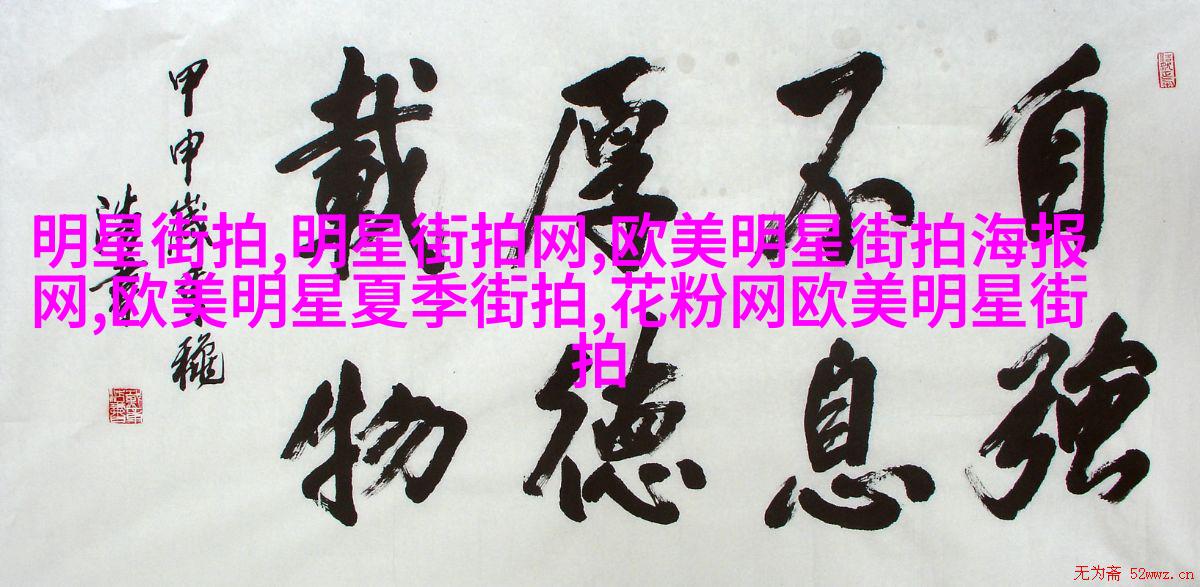 自强
不息
厚德
载物
甲申岁末穐
明星街拍,明星街拍网,欧美明星街拍海报
网,欧美明星夏季街拍,花粉网欧美明星街
拍
无为斋 52wwz.cn